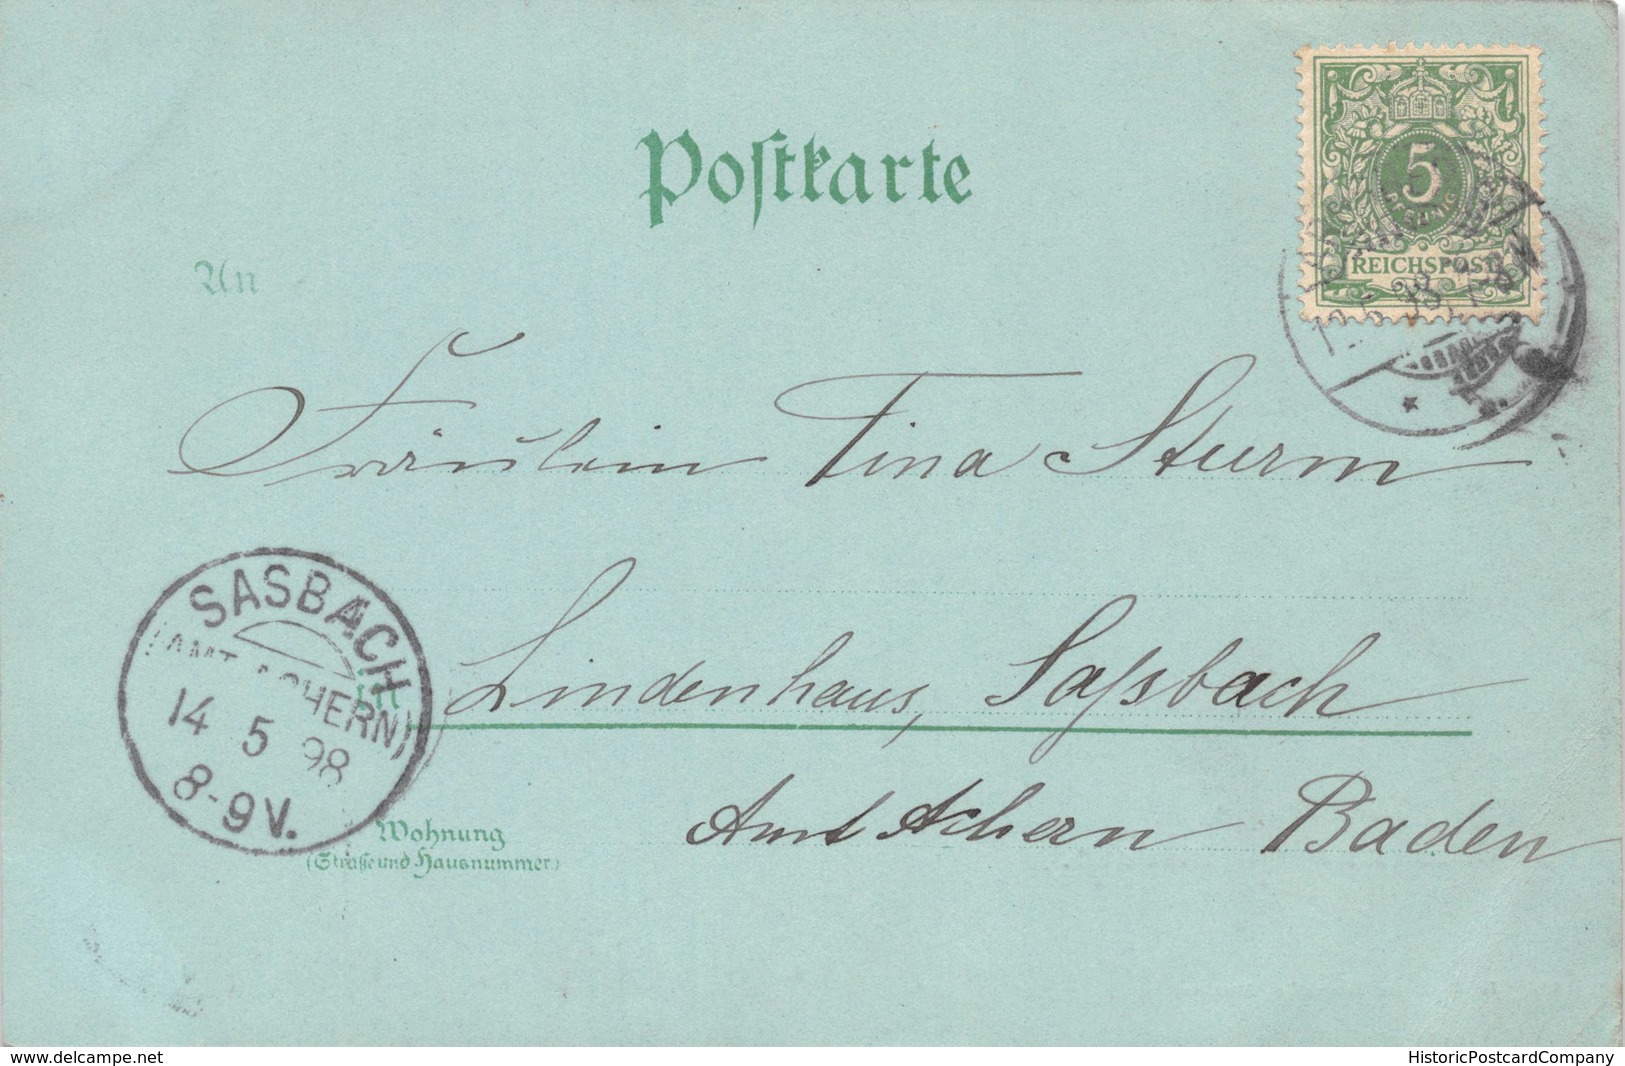 Postkarte
5
PFENNIG
REICHSPOST
An
Fräulein Tina Sturm
SASBACH
(AMT ACHERN)
14 5 98
8-9V.
in
Lindenhaus, Sassbach
Amt Achern Baden
Wohnung
(Straße und Hausnummer)
www.delcampe.net
HistoricPostcardCompany